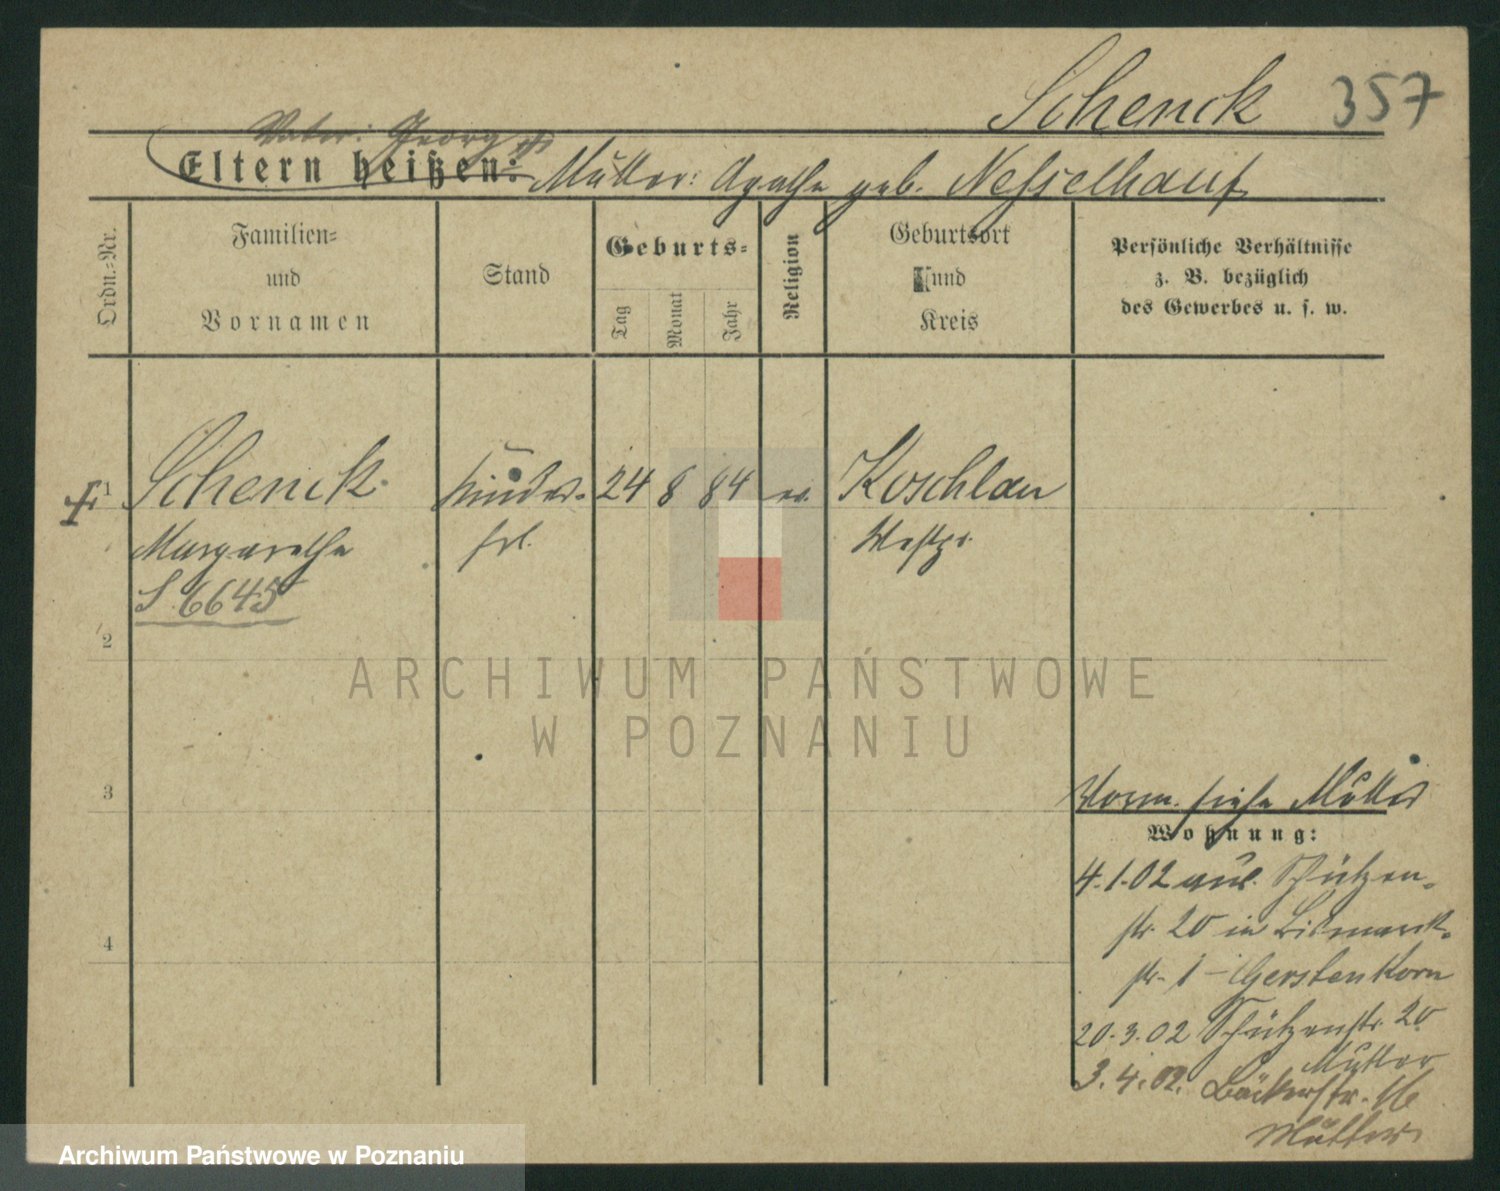 Schenck 357
Vater: Georg
Eltern heißen: Mutter: Agathe geb. Nesselhauf
Ordn.=Nr.
Familien=
und
Vornamen
Stand
Geburts=
Tag
Monat
Jahr
Religion
Geburtsort
und
Kreis
Persönliche Verhältnisse
z. B. bezüglich
des Gewerbes u. s. w.
1 Schenck Kinder- 24 8 84 ev. Koschlau
Margarethe frl. Westpr.
S 6645
2
ARCHIWUM PAŃSTWOWE
W POZNANIU
3
Vorm. siehe Mutter
Wohnung:
4.1.02 aus Schützen-
str. 20 in Bismarck-
str. 1 – Gerstenkorn
4
20.3.02 Schützenstr. 20
Mutter
3.4.02. Bäckerstr. 16
Mutter
Archiwum Państwowe w Poznaniu